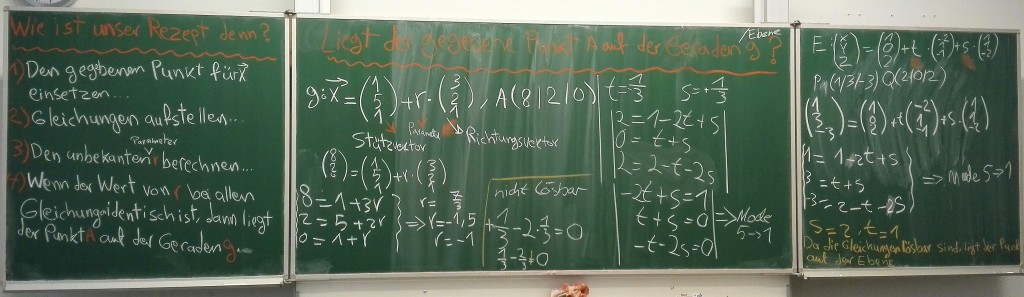 Wie ist unser Rezept denn?
1) Den gegebenen Punkt für x⃗
einsetzen...
2) Gleichungen aufstellen...
Parameter
3) Den unbekanten r berechnen...
4) Wenn der Wert von r bei allen
Gleichung identisch ist, dann liegt
der Punkt A auf der Geraden g.
/Ebene
Liegt der gegebene Punkt A auf der Geraden g?
g: x⃗ = (1 5 1) + r · (3 3 1), A(8|2|0)
Stützvektor Parameter Richtungsvektor
= (1 5 1) + r · (3 3 1)
8 = 1 + 3r r = 7/3
2 = 5 + 3r => r = -1,5
0 = 1 + r r = -1
nicht lösbar
1/3 - 2·1/3 = 0
1/3 - 2/3 ≠ 0
t = -1/3 s = +1/3
2 = 1 - 2t + s
0 = t + s
2 = 2 - t - 2s
-2t + s = 1
t + s = 0 => Mode
-t - 2s = 0 5 -> 1
E: (x y z) = (1 0 2) + t · (-2 1 -1) + s · (1 1 -2)
P(1/3/-3) Q(2|0|2)
(1 3 -3) = (1 0 2) + t (-2 1 -1) + s · (1 1 -2)
1 = 1 - 2t + s
3 = t + s => mode 5 -> 1
-3 = 2 - t - 2s
s = 2, t = 1
Da die Gleichungen lösbar sind, ligt der Punkt
auf der Ebene